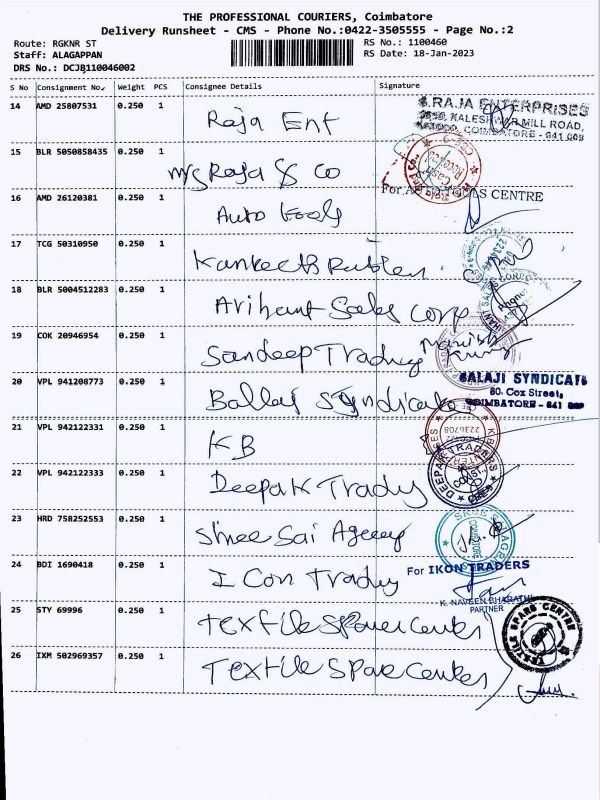 THE PROFESSIONAL COURIERS, Coimbatore
Delivery Runsheet - CMS - Phone No.:0422-3505555 - Page No.:2
Route: RGKNR ST
RS No.: 1100460
Staff: ALAGAPPAN
RS Date: 18-Jan-2023
DRS No.: DCJB110046002
S No Consignment No. Weight PCS Consignee Details Signature
14 AMD 25807531 0.250 1 Raja Ent
S.RAJA ENTERPRISES
KALESHWAR MILL ROAD,
COIMBATORE - 641 009
15 BLR 5050858435 0.250 1 M/s Raja & Co
16 AMD 26120381 0.250 1 Auto Tools
CENTRE
17 TCG 50310950 0.250 1
18 BLR 5004512283 0.250 1 Arihant Sales Corp
19 COK 20946954 0.250 1 Sandeep Trading
Manish
20 VPL 941208773 0.250 1 Ballaj Syndicate
BALAJI SYNDICATE
60, Cox Street,
COIMBATORE - 641 001
21 VPL 942122331 0.250 1 KB
22 VPL 942122333 0.250 1 Deepak Trading
DEEPAK TRADERS
23 HRD 758252553 0.250 1 Shree Sai Agency
24 BDI 1690418 0.250 1 I Con Trading
For IKON TRADERS
K. NAVEEN BHARATHI
PARTNER
25 STY 69996 0.250 1 Textile Spare Center
TEXTILE SPARE CENTRE
26 IXM 502969357 0.250 1 Textile Spare Center